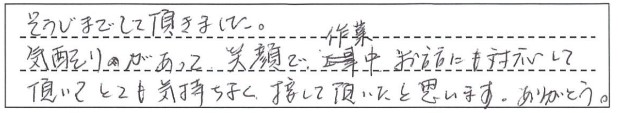 そうじまでして頂きました。
気配りがあって、笑顔で、作業中、お話にも対応して
頂いてとても気持ちよく、接して頂いたと思います。ありがとう。